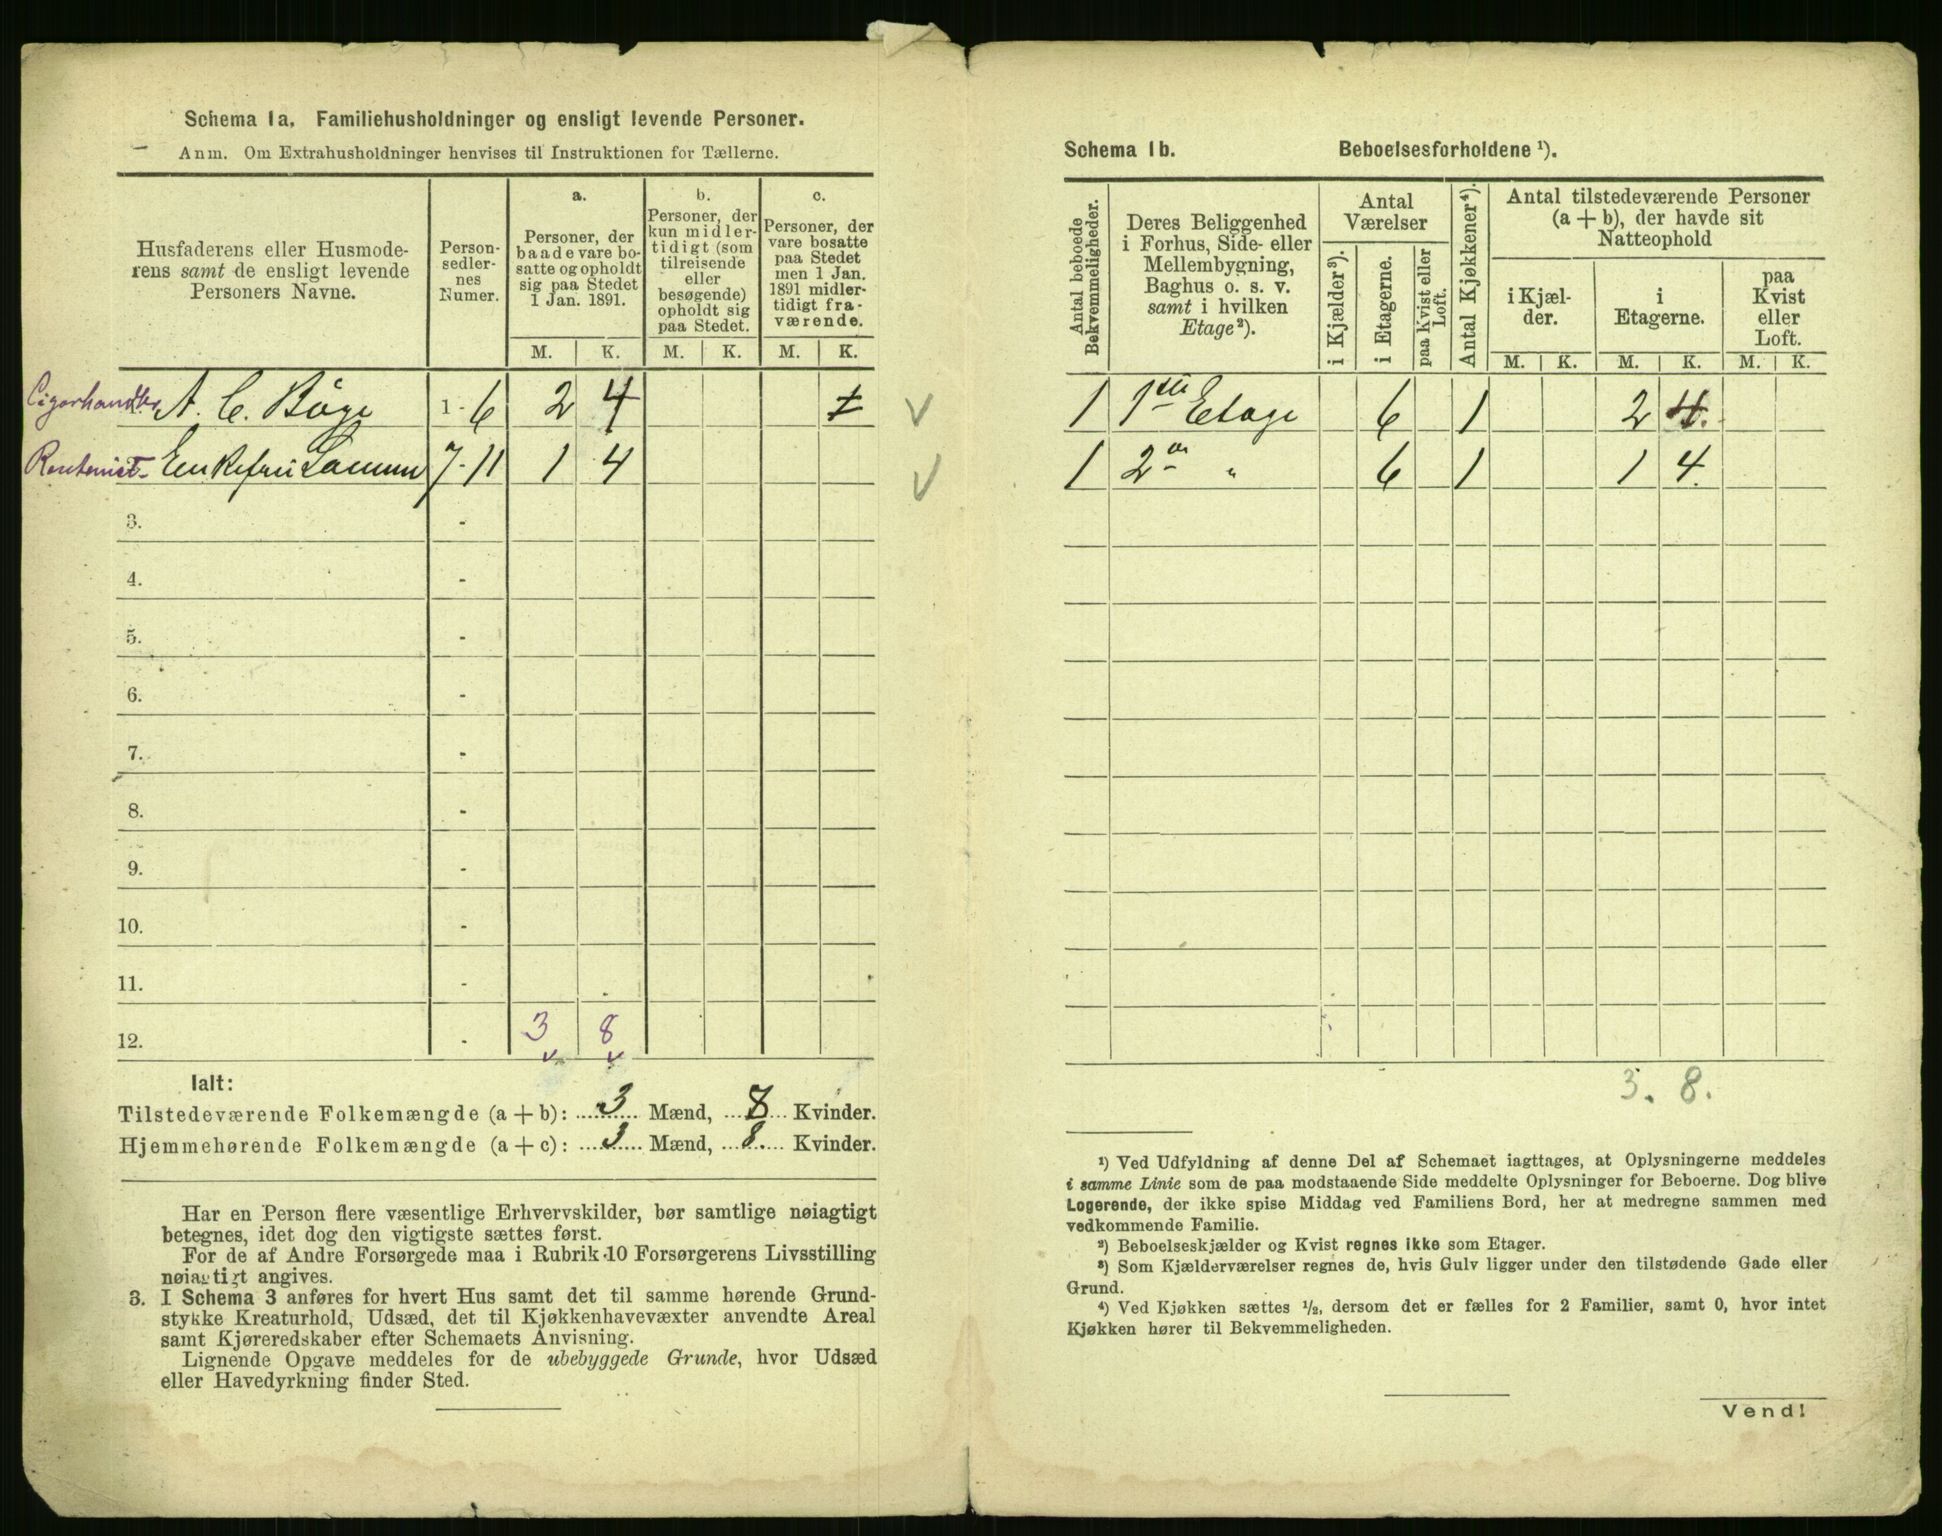 Schema 1a. Familiehusholdninger og ensligt levende Personer.
Anm. Om Extrahusholdninger henvises til Instruktionen for Tællerne.
Husfaderens eller Husmoderens samt de ensligt levende Personers Navne.
Personsedlernes Numer.
a.
Personer, der baade vare bosatte og opholdt sig paa Stedet 1 Jan. 1891.
b.
Personer, der kun midlertidigt (som tilreisende eller besøgende) opholdt sig paa Stedet.
c.
Personer, der vare bosatte paa Stedet men 1 Jan. 1891 midlertidigt fraværende.
M. K. M. K. M. K.
A. C. Böge 1-6 2 4
Rentenist Enkefru 7-11 1 4
3. -
4. -
5. -
6. -
7. -
8. -
9. -
10. -
11. -
12. - 3 8
Ialt:
Tilstedeværende Folkemængde (a + b): 3 Mænd, 8 Kvinder.
Hjemmehørende Folkemængde (a + c): 3 Mænd, 8. Kvinder.
Har en Person flere væsentlige Erhvervskilder, bør samtlige nøiagtigt
betegnes, idet dog den vigtigste sættes først.
For de af Andre Forsørgede maa i Rubrik 10 Forsørgerens Livsstilling
nøiagtigt angives.
3. I Schema 3 anføres for hvert Hus samt det til samme hørende Grund-
stykke Kreaturhold, Udsæd, det til Kjøkkenhavevæxter anvendte Areal
samt Kjøreredskaber efter Schemaets Anvisning.
Lignende Opgave meddeles for de ubebyggede Grunde, hvor Udsæd
eller Havedyrkning finder Sted.
Schema 1b. Beboelsesforholdene ¹).
Antal beboede Bekvemmeligheder.
Deres Beliggenhed i Forhus, Side- eller Mellembygning, Baghus o. s. v. samt i hvilken Etage²).
Antal Værelser
i Kjælder³).
i Etagerne.
paa Kvist eller Loft.
Antal Kjøkkener⁴).
Antal tilstedeværende Personer (a + b), der havde sit Natteophold
i Kjælder.
i Etagerne.
paa Kvist eller Loft.
M. K. M. K. M. K.
1 1ste Etage 6 1 2 4.
1 2den " 6 1 1 4.
3. 8.
¹) Ved Udfyldning af denne Del af Schemaet iagttages, at Oplysningerne meddeles
i samme Linie som de paa modstaaende Side meddelte Oplysninger for Beboerne. Dog blive
Logerende, der ikke spise Middag ved Familiens Bord, her at medregne sammen med
vedkommende Familie.
²) Beboelseskjælder og Kvist regnes ikke som Etager.
³) Som Kjælderværelser regnes de, hvis Gulv ligger under den tilstødende Gade eller
Grund.
⁴) Ved Kjøkken sættes ½, dersom det er fælles for 2 Familier, samt 0, hvor intet
Kjøkken hører til Bekvemmeligheden.
Vend!